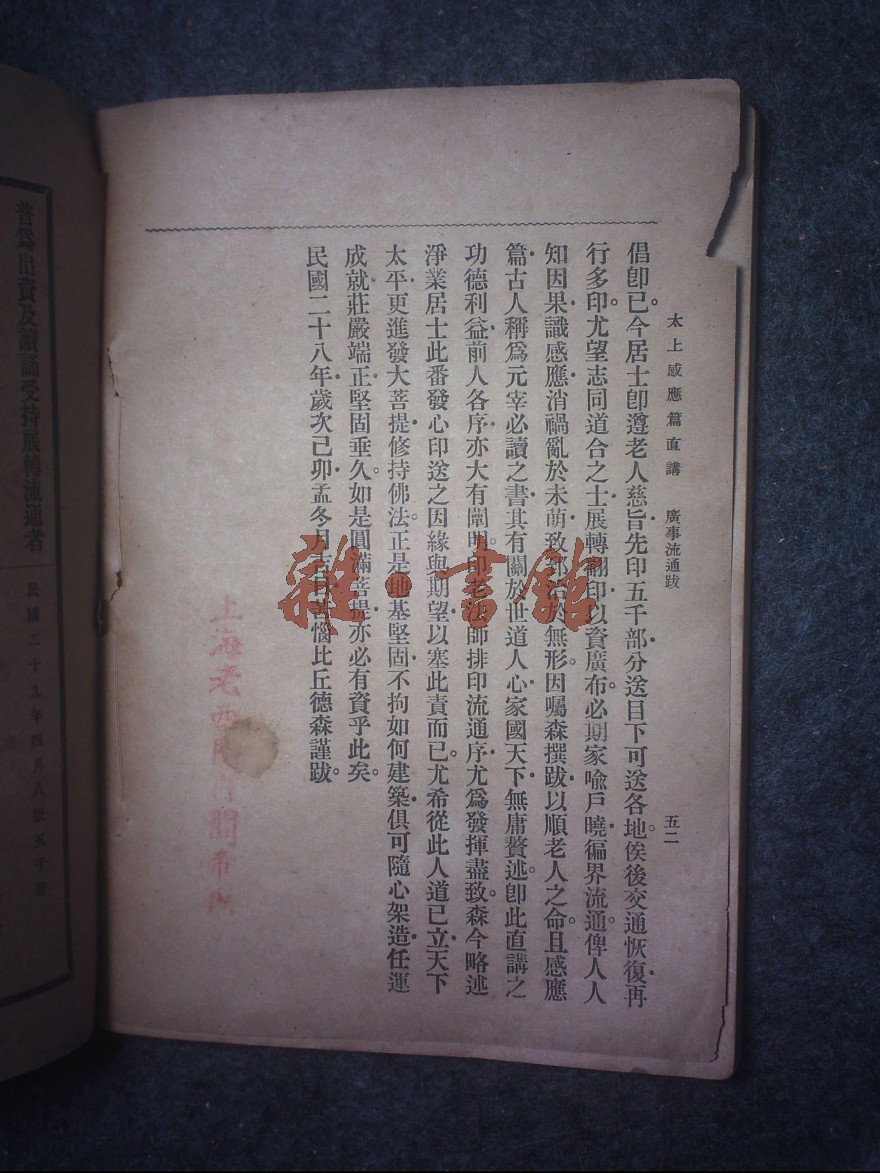 太上感應篇直講　廣事流通跋　五二
倡卽已。今居士卽遵老人慈旨。先印五千部。分送目下可送各地。俟後交通恢復。再
行多印。尤望志同道合之士。展轉翻印。以資廣布。必期家喩戶曉。徧界流通。俾人人
知因果。識感應。消禍亂於未萌。致郅治於無形。因囑森撰跋。以順老人之命。且感應
篇。古人稱爲元宰必讀之書。其有關於世道人心。家國天下。無庸贅述。卽此直講之
功德利益。前人各序。亦大有闡明。印老法師排印流通序。尤爲發揮盡致。森今略述
淨業居士此番發心印送之因緣與期望。以塞此責而已。尤希從此人道已立。天下
太平。更進發大菩提。修持佛法。正是地基堅固。不拘如何建築。俱可隨心架造。任運
成就。莊嚴端正。堅固垂久。如是圓滿菩提。亦必有資乎此矣。
民國二十八年歲次己卯孟冬月吉日苦惱比丘德森謹跋。
雜·書館
上海老西門
普爲出資及讀誦受持展轉流通者
民國二十九年四月八